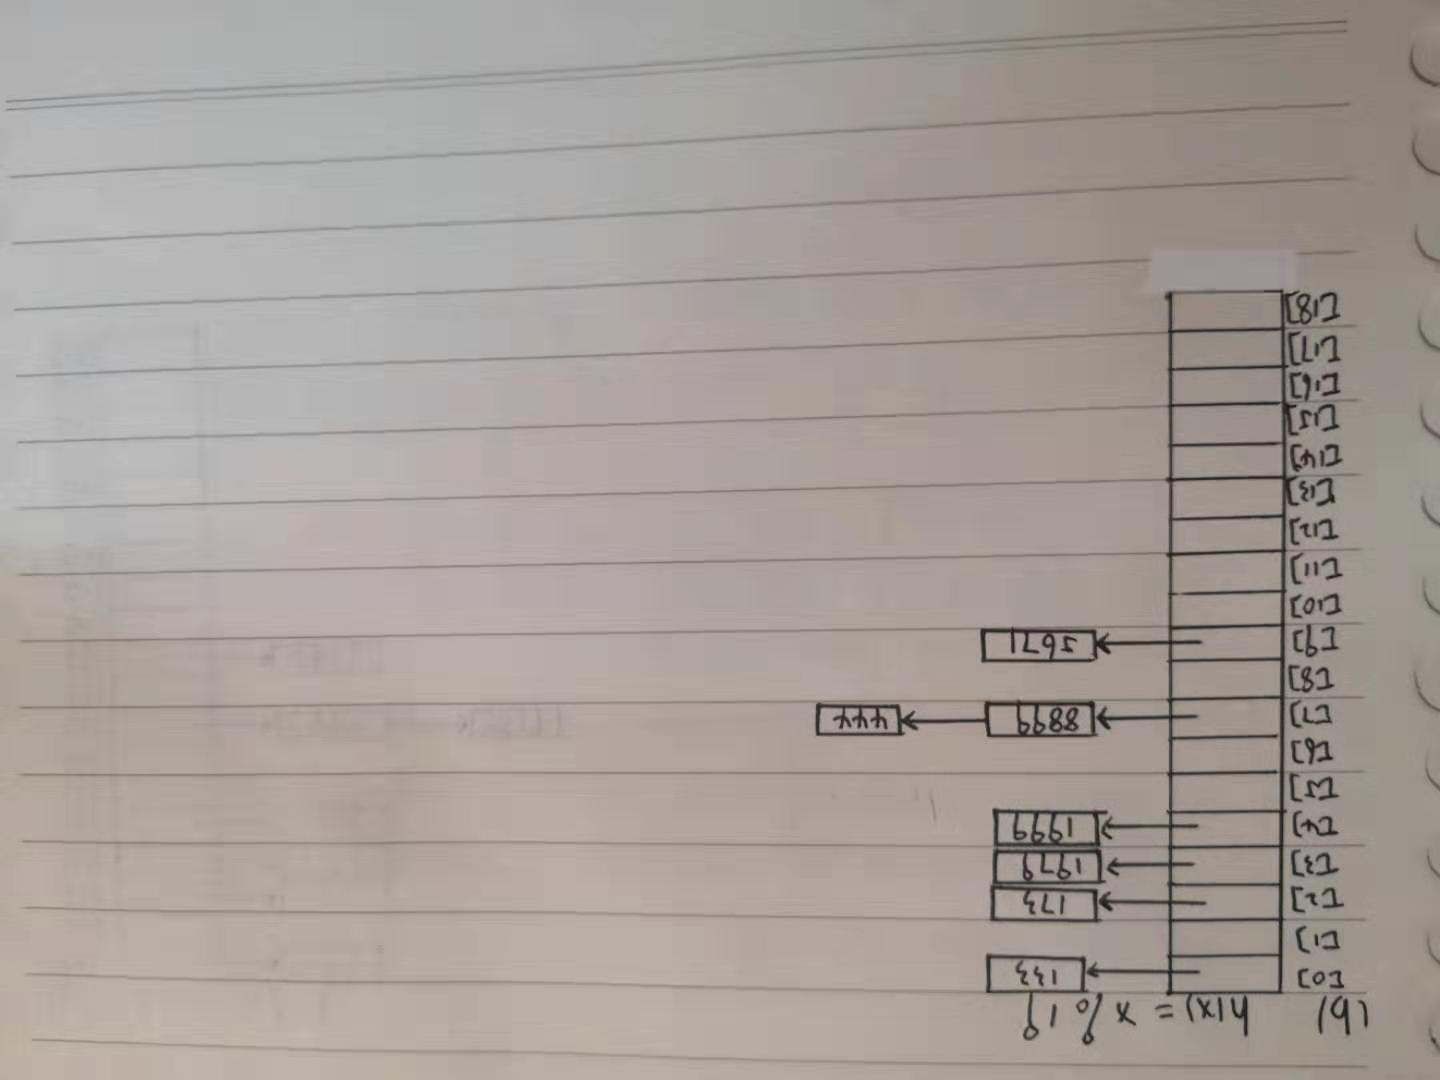 (b) h(x) = x % 19
[0] 133
[1]
[2] 173
[3] 1979
[4] 1999
[5]
[6]
[7] 8899 444
[8]
[9] 5671
[10]
[11]
[12]
[13]
[14]
[15]
[16]
[17]
[18]